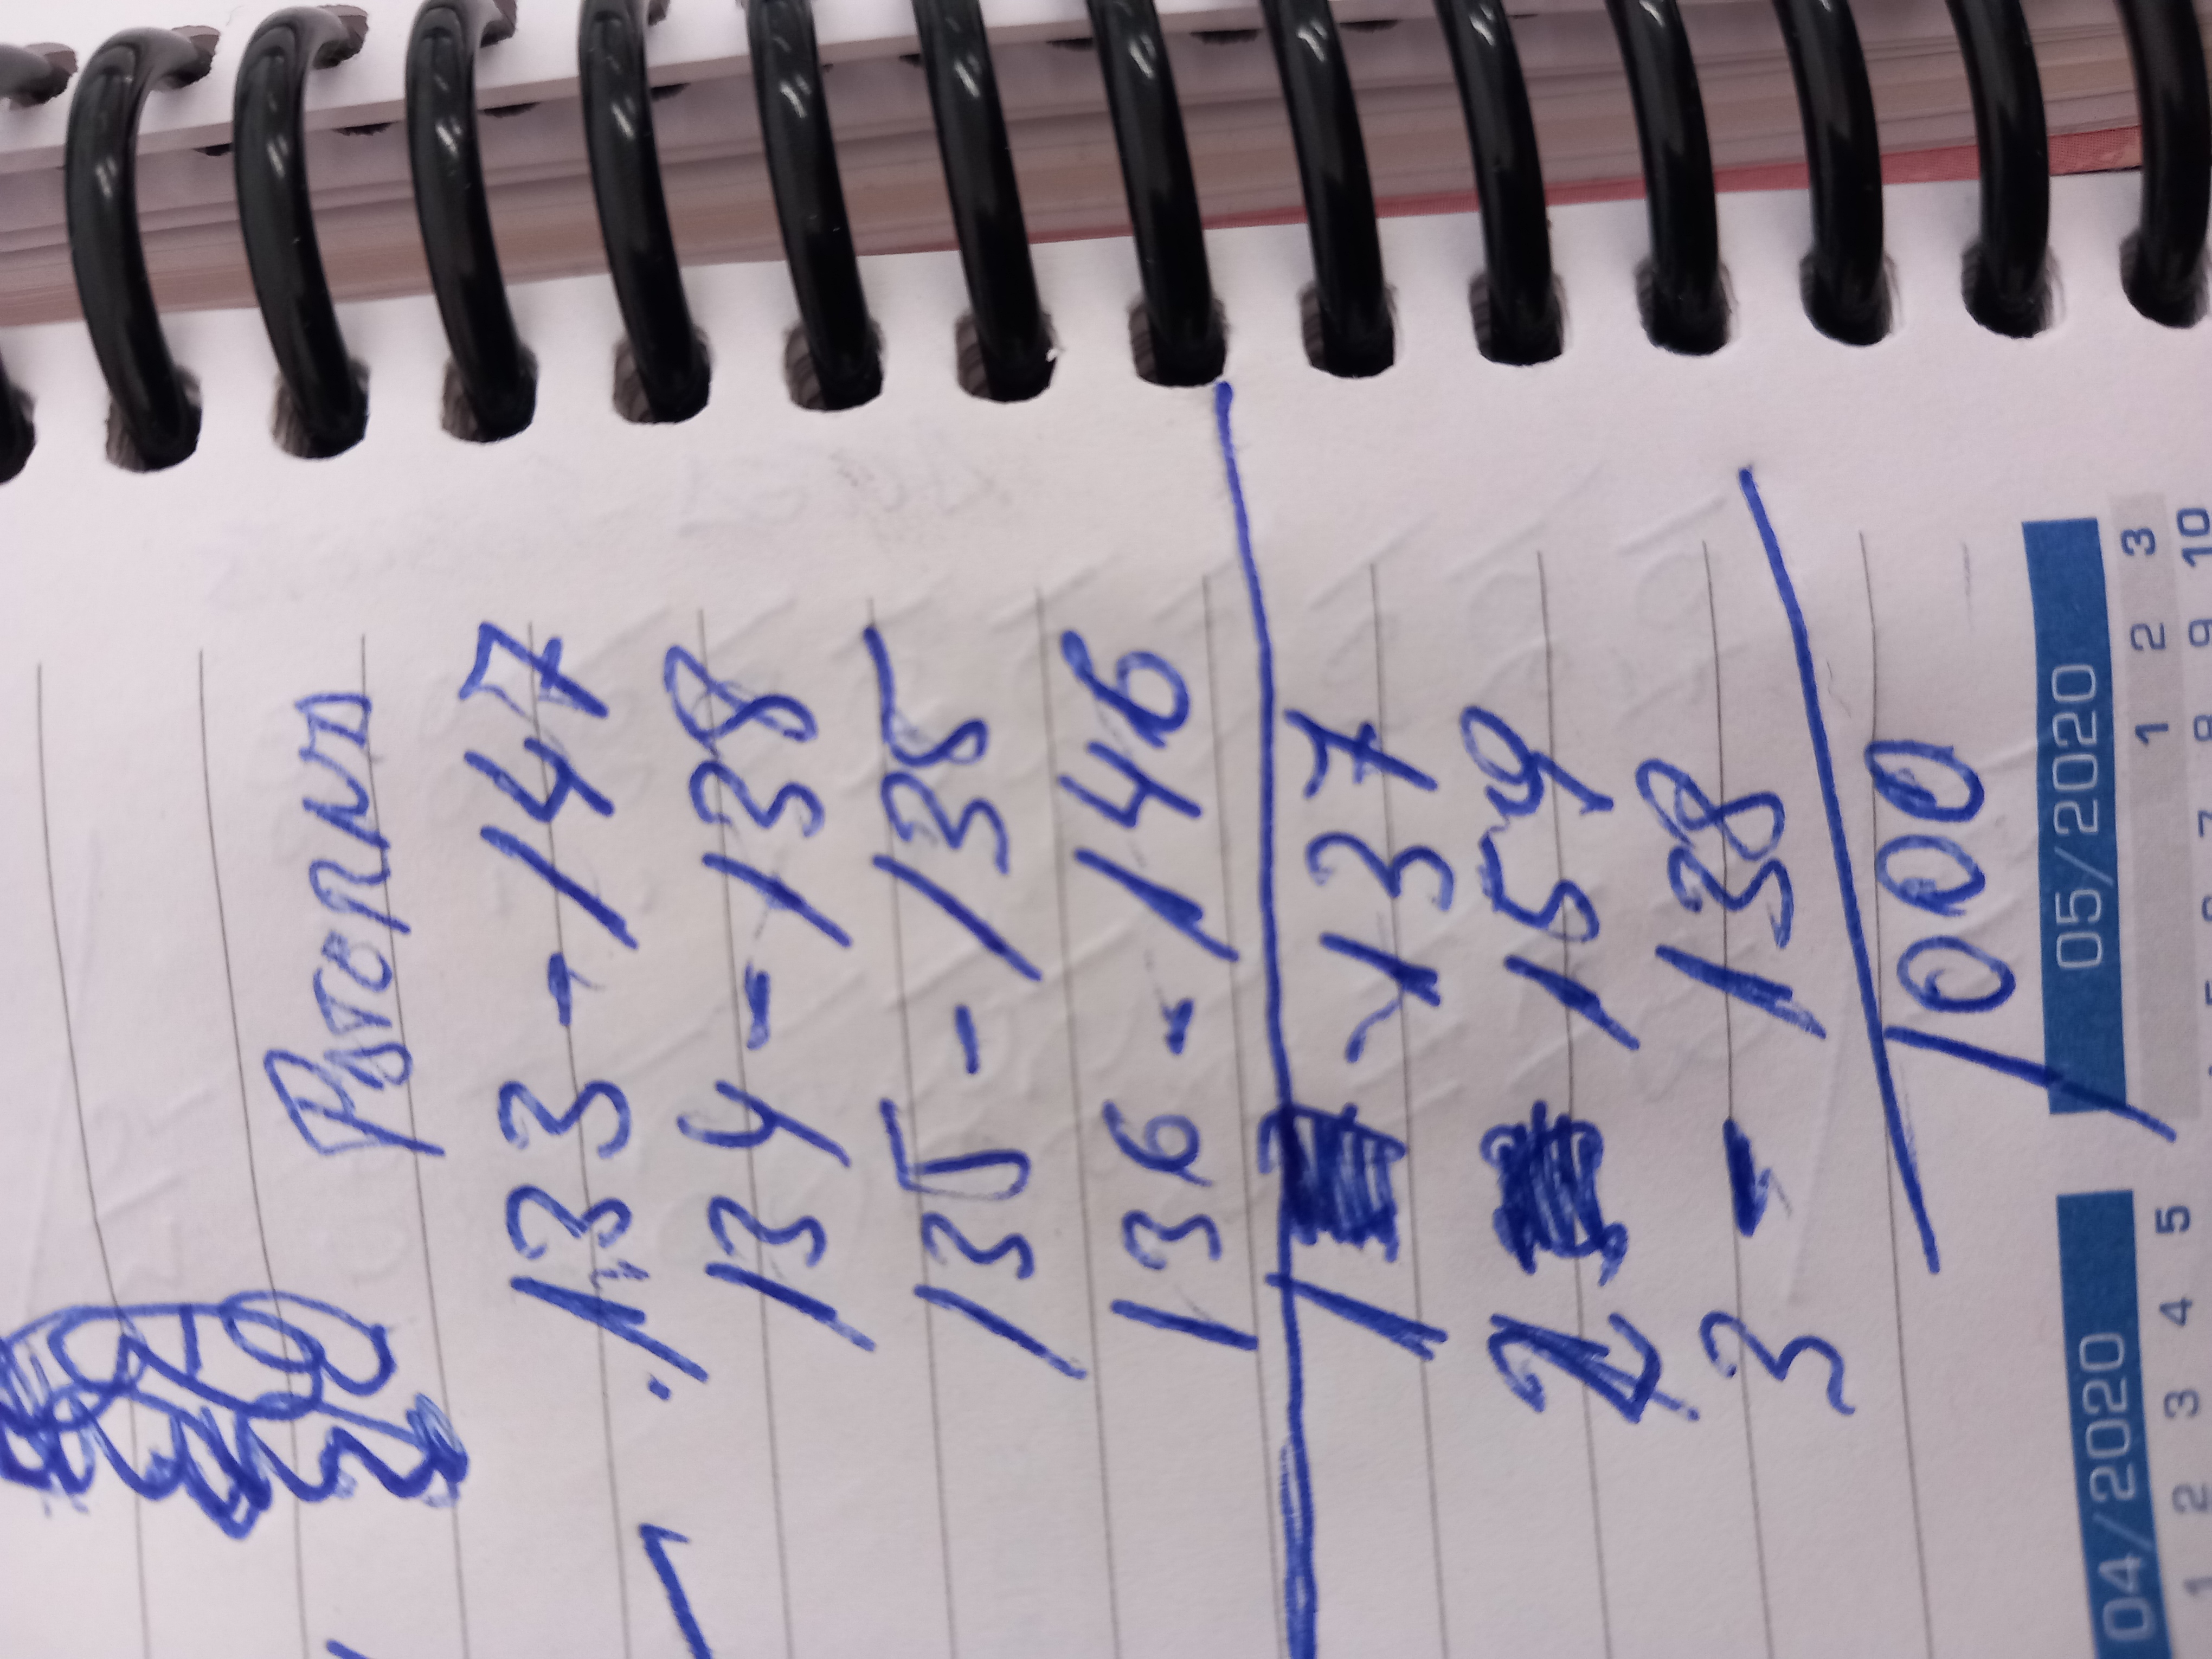 133 - 147
134 - 138
135 - 135
136 - 146
1 - 137
2 159
3 - 138
1000
04/2020 05/2020
1 2 3 4 5 1 2 3
6 7 8 9 10